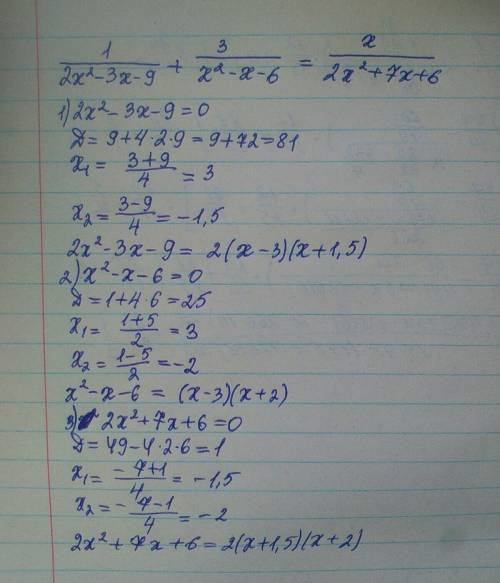 1/(2x²-3x-9) + 3/(x²-x-6) = x/(2x²+7x+6)
1) 2x²-3x-9=0
D=9+4·2·9=9+72=81
x₁= (3+9)/4 = 3
x₂= (3-9)/4 = -1,5
2x²-3x-9= 2(x-3)(x+1,5)
2) x²-x-6=0
D=1+4·6=25
x₁= (1+5)/2 = 3
x₂= (1-5)/2 = -2
x²-x-6 = (x-3)(x+2)
3) 2x²+7x+6=0
D=49-4·2·6=1
x₁= (-7+1)/4 = -1,5
x₂= (-7-1)/4 = -2
2x²+7x+6=2(x+1,5)(x+2)